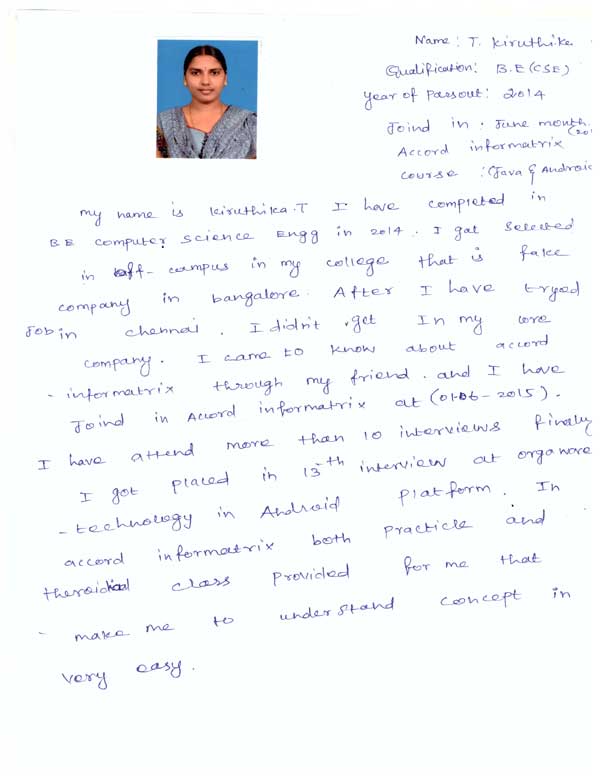 Name: T. Kiruthika
Qualification: B.E (CSE)
Year of Passout: 2014
Joind in : June month.
(20
Accord informatrix
Course : (Java & Android
My name is Kiruthika.T I have completed in
BE Computer Science Engg in 2014. I got selected
in off-campus in my college that is fake
company in bangalore. After I have tryed
Job in chennai. I didn't get In my core
company. I came to know about accord
- informatrix through my friend. and I have
Joind in Accord informatrix at (01-06-2015).
I have attend more than 10 interviews finally
I got placed in 13th interview at organore
- technology in Android platform. In
accord informatrix both practicle and
class provided for me that
- make me to understand concept in
very easy.